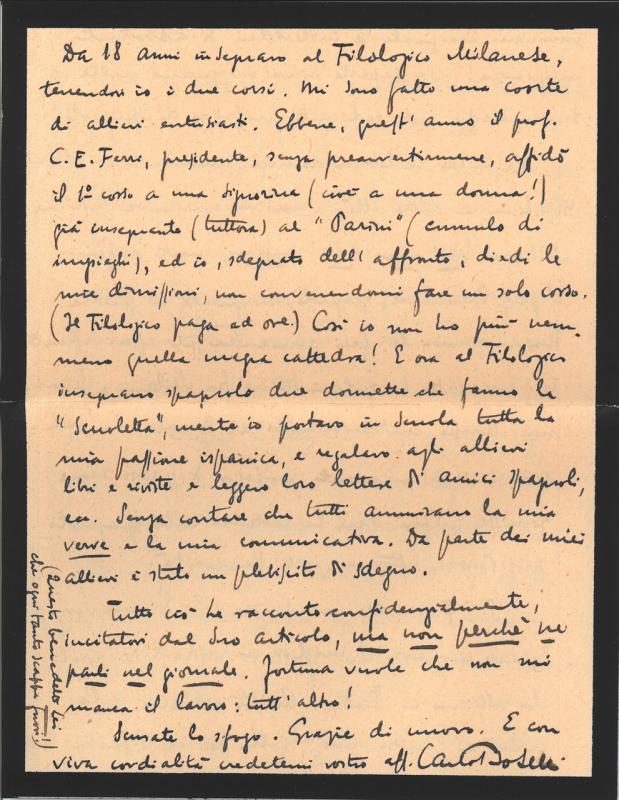 Da 18 anni insegnavo al Filologico Milanese,
tenendovi io i due corsi. Mi sono fatto una coorte
di allievi entusiasti. Ebbene, quest'anno il prof.
C. E. Ferri, presidente, senza preavvertirmene, affidò
il 1º corso a una signorina (cioè a una donna!)
già insegnante (tuttora) al "Parini" (cumulo di
impieghi), ed io, sdegnato dell'affronto, diedi le
mie dimissioni, non convenendomi fare un solo corso.
(Il Filologico paga ad ore.) Così io non ho più nem-
meno quella magra cattedra! E ora al Filologico
insegnano spagnolo due donnette che fanno la
"Scuoletta", mentre io portavo in Scuola tutta la
mia passione ispanica, e regalavo agli allievi
libri e riviste e leggevo loro lettere di amici spagnoli,
ecc. Senza contare che tutti ammiravano la mia
verve e la mia comunicativa. Da parte dei miei
allievi è stato un plebiscito di sdegno.
Tutto ciò Le racconto confidenzialmente,
incitatovi dal Suo articolo, ma non perchè ne
parli nel giornale. Fortuna vuole che non mi
manca il lavoro: tutt'altro!
Scusate lo sfogo. Grazie di nuovo. E con
viva cordialità credetemi vostro aff. Carlo Boselli
(Questo benedetto lei
che ogni tanto scappa fuori!)